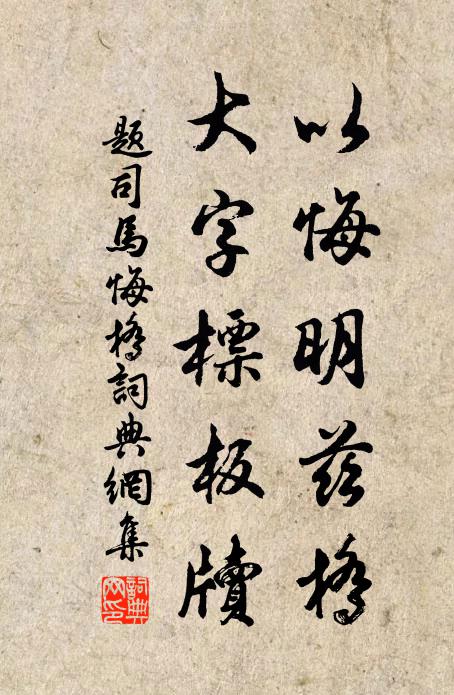 以悔明茲橋
大字標板牘
題司馬悔橋詞典網集
詞典網印